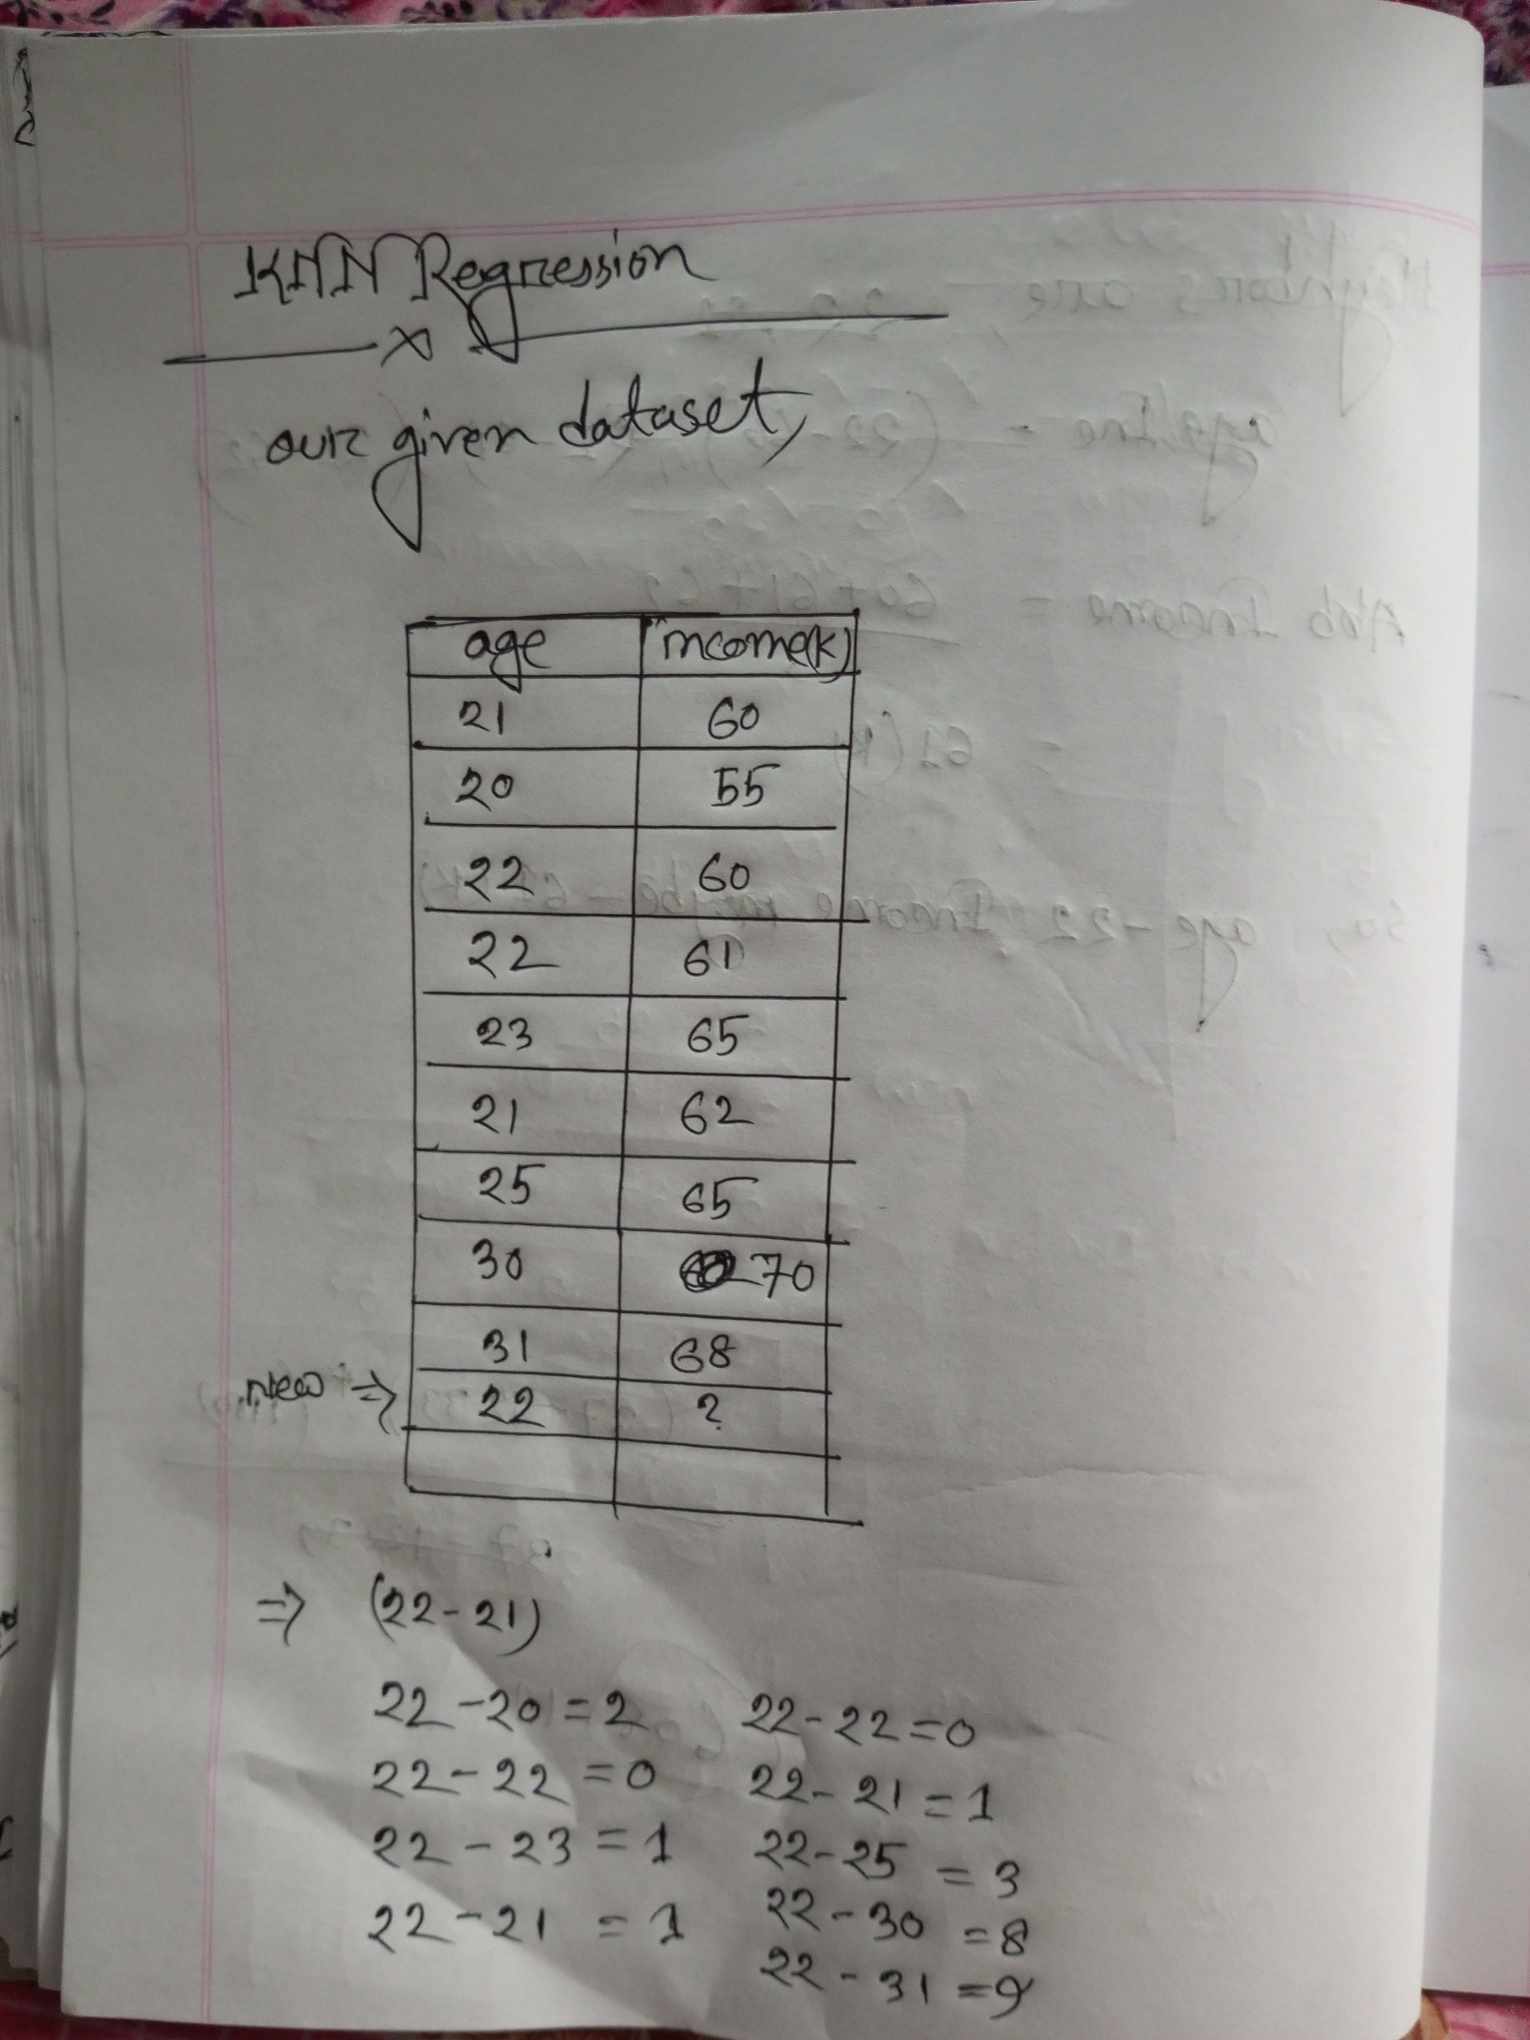 KNN Regression
x
our given dataset,
age income(k)
21 60
20 55
22 60
22 61
23 65
21 62
25 65
30 70
31 68
new ⇒ 22 ?
⇒ (22-21)
22-20=2 22-22=0
22-22=0 22-21=1
22-23=1 22-25=3
22-21=1 22-30=8
22-31=9